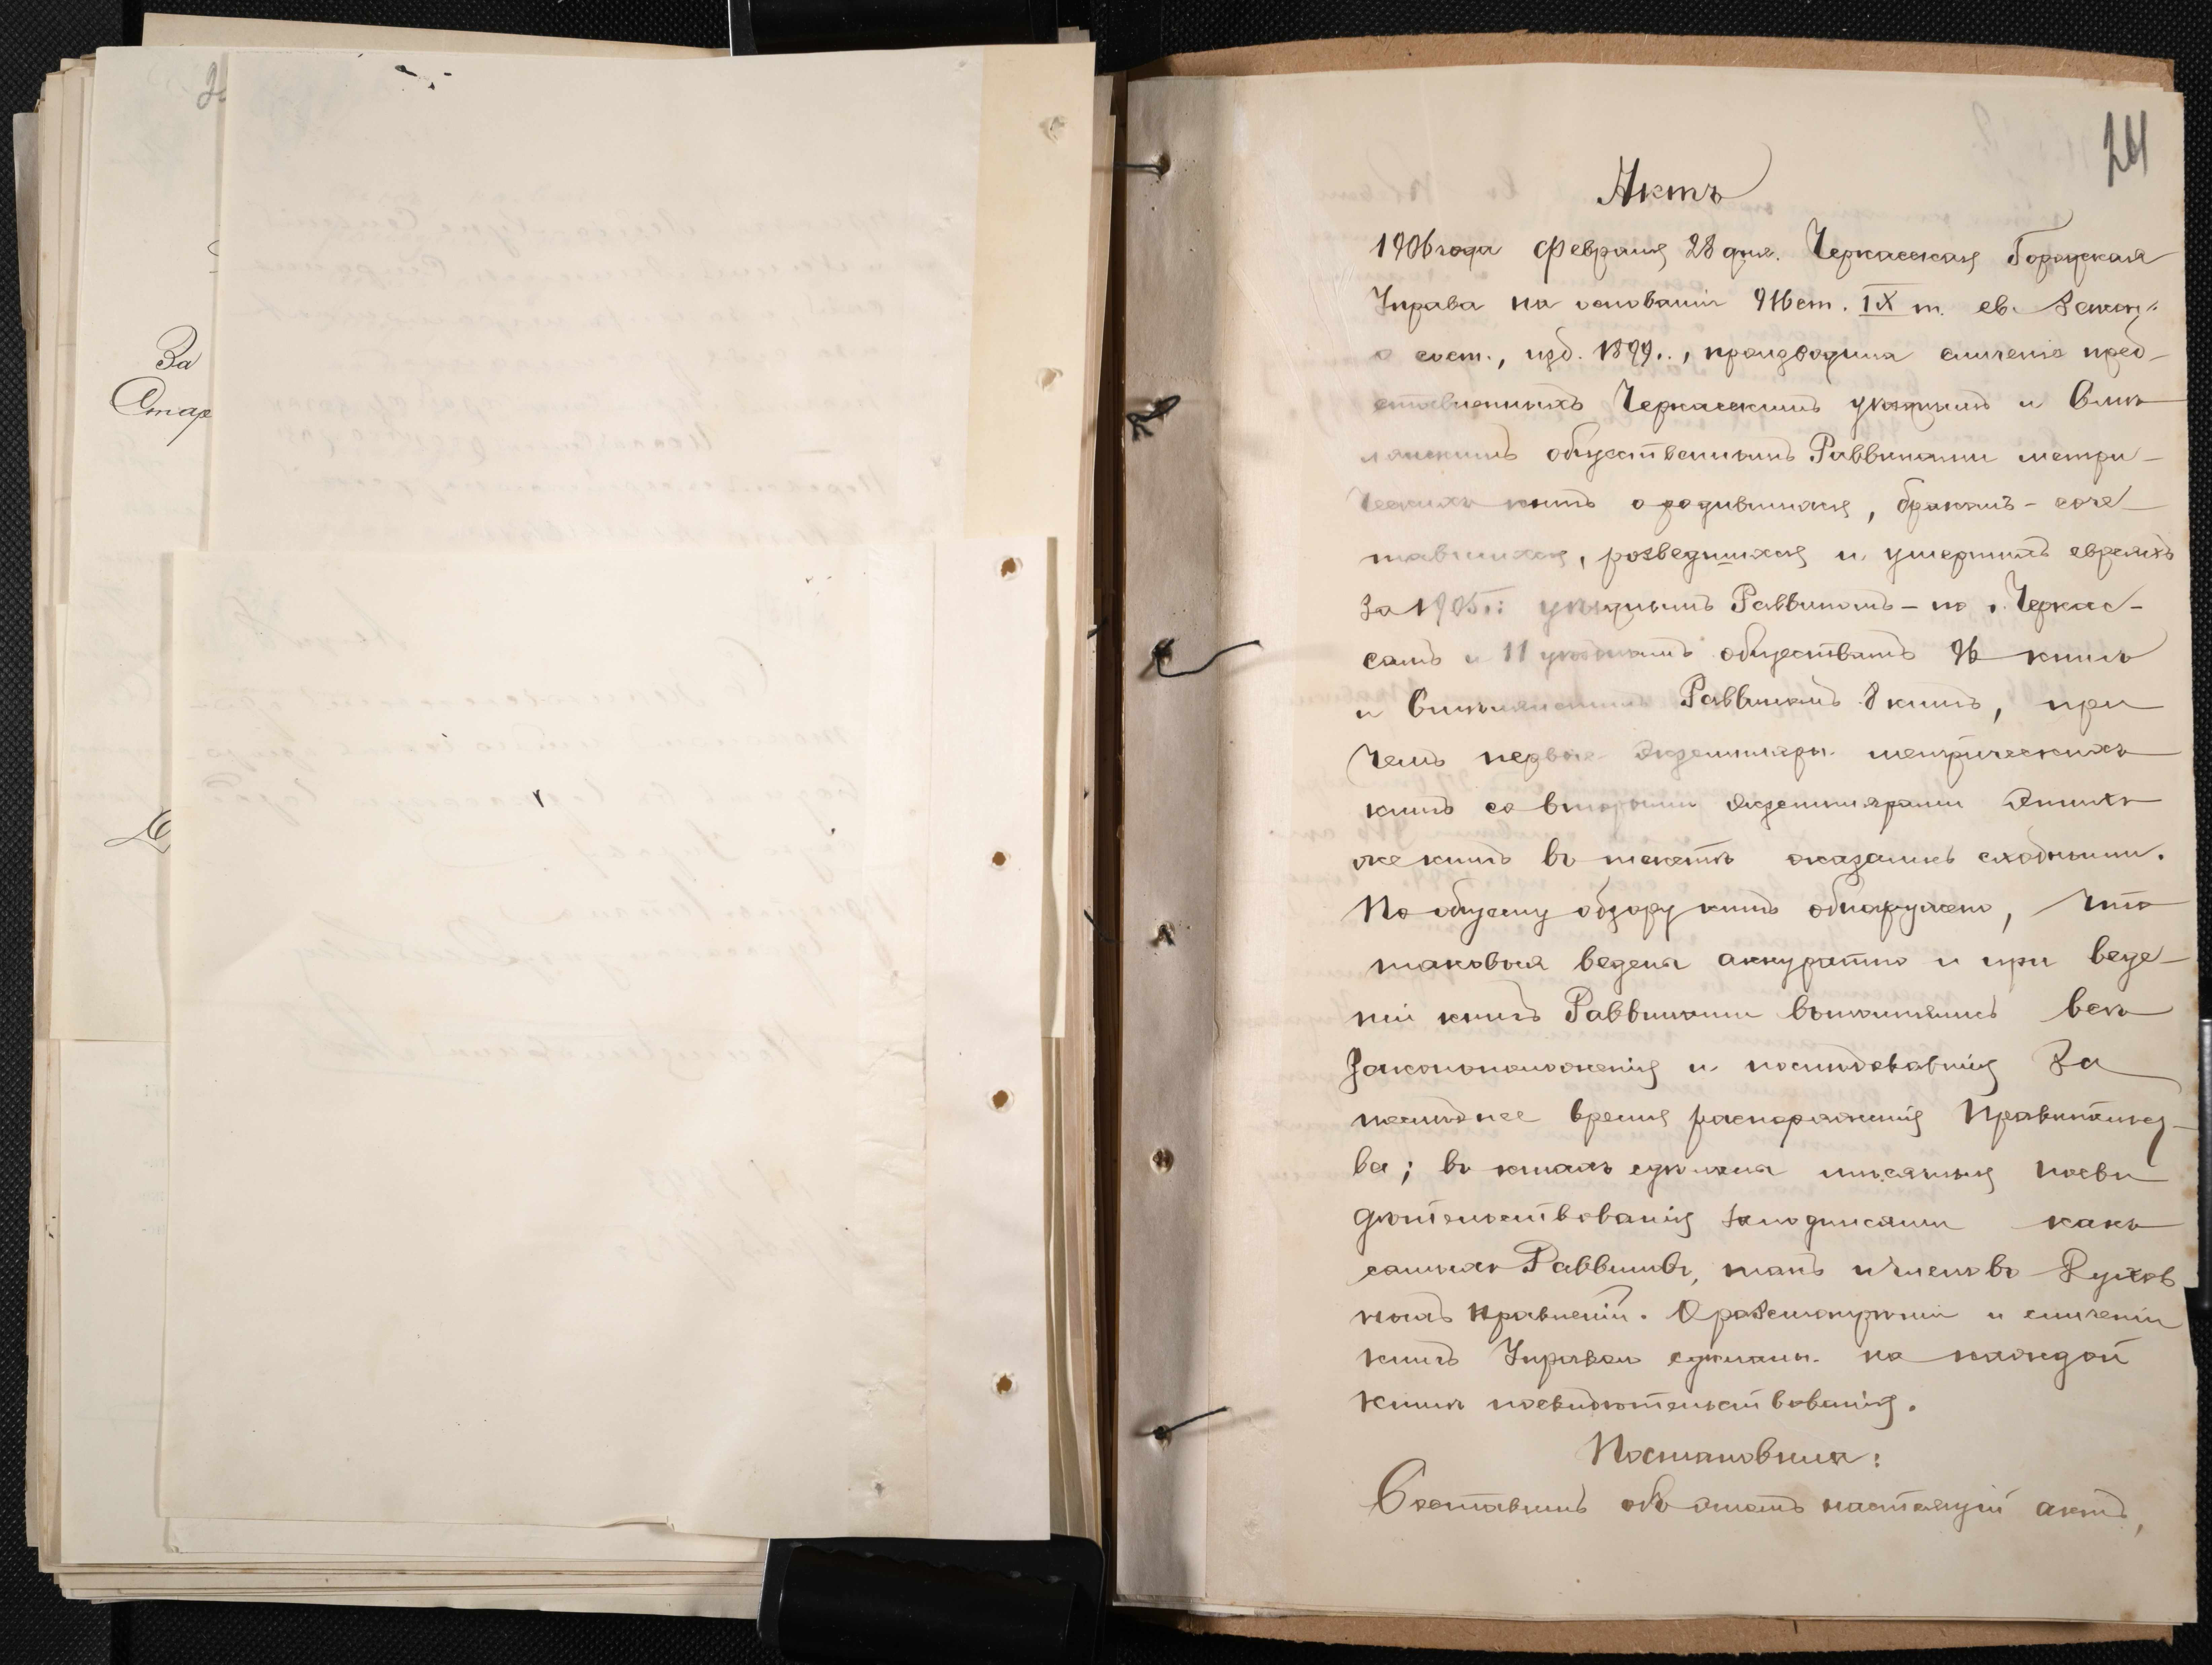 За
Стар
24
Актъ
1906 года Февраля 28 дня. Черкасская Городская
Управа на основаніи 916 ст. IX т. св. Закон.
о сост., изд. 1899 г., производила сличеніе пред-
ставленныхъ Черкасскимъ уѣзднымъ и Смѣ-
лянскимъ общественнымъ Раввинами метри-
ческихъ книгъ о родившихся, бракомъ-соче-
тавшихся, розведшихся и умершихъ евреяхъ
за 1905 г.: уѣзднымъ Раввиномъ - по г. Черкас-
самъ и 11 уѣзднымъ обществамъ 96 книгъ
и Смѣлянскимъ Раввиномъ 8 книгъ, при
чемъ первые экземпляры метрическихъ
книгъ со вторыми экземплярами этихъ
же книгъ въ текстѣ оказались сходными.
По общему обзору книгъ обнаружено, что
таковыя ведены аккуратно и при веде-
ніи книгъ Раввинами выполнялись всѣ
Законоположенія и послѣдовавшія За
послѣднее время распоряженія Правительст-
ва; въ книгахъ сдѣланы писанныя посви
дѣтельствованія за подписами какъ
самихъ Раввиновъ, такъ и членовъ Духов
ныхъ правленій. О разсмотрѣніи и сличеніи
книгъ Управою сдѣланы на каждой
книгѣ посвидѣтельствованія.
Постановила:
Составивъ объ этомъ настоящій актъ,